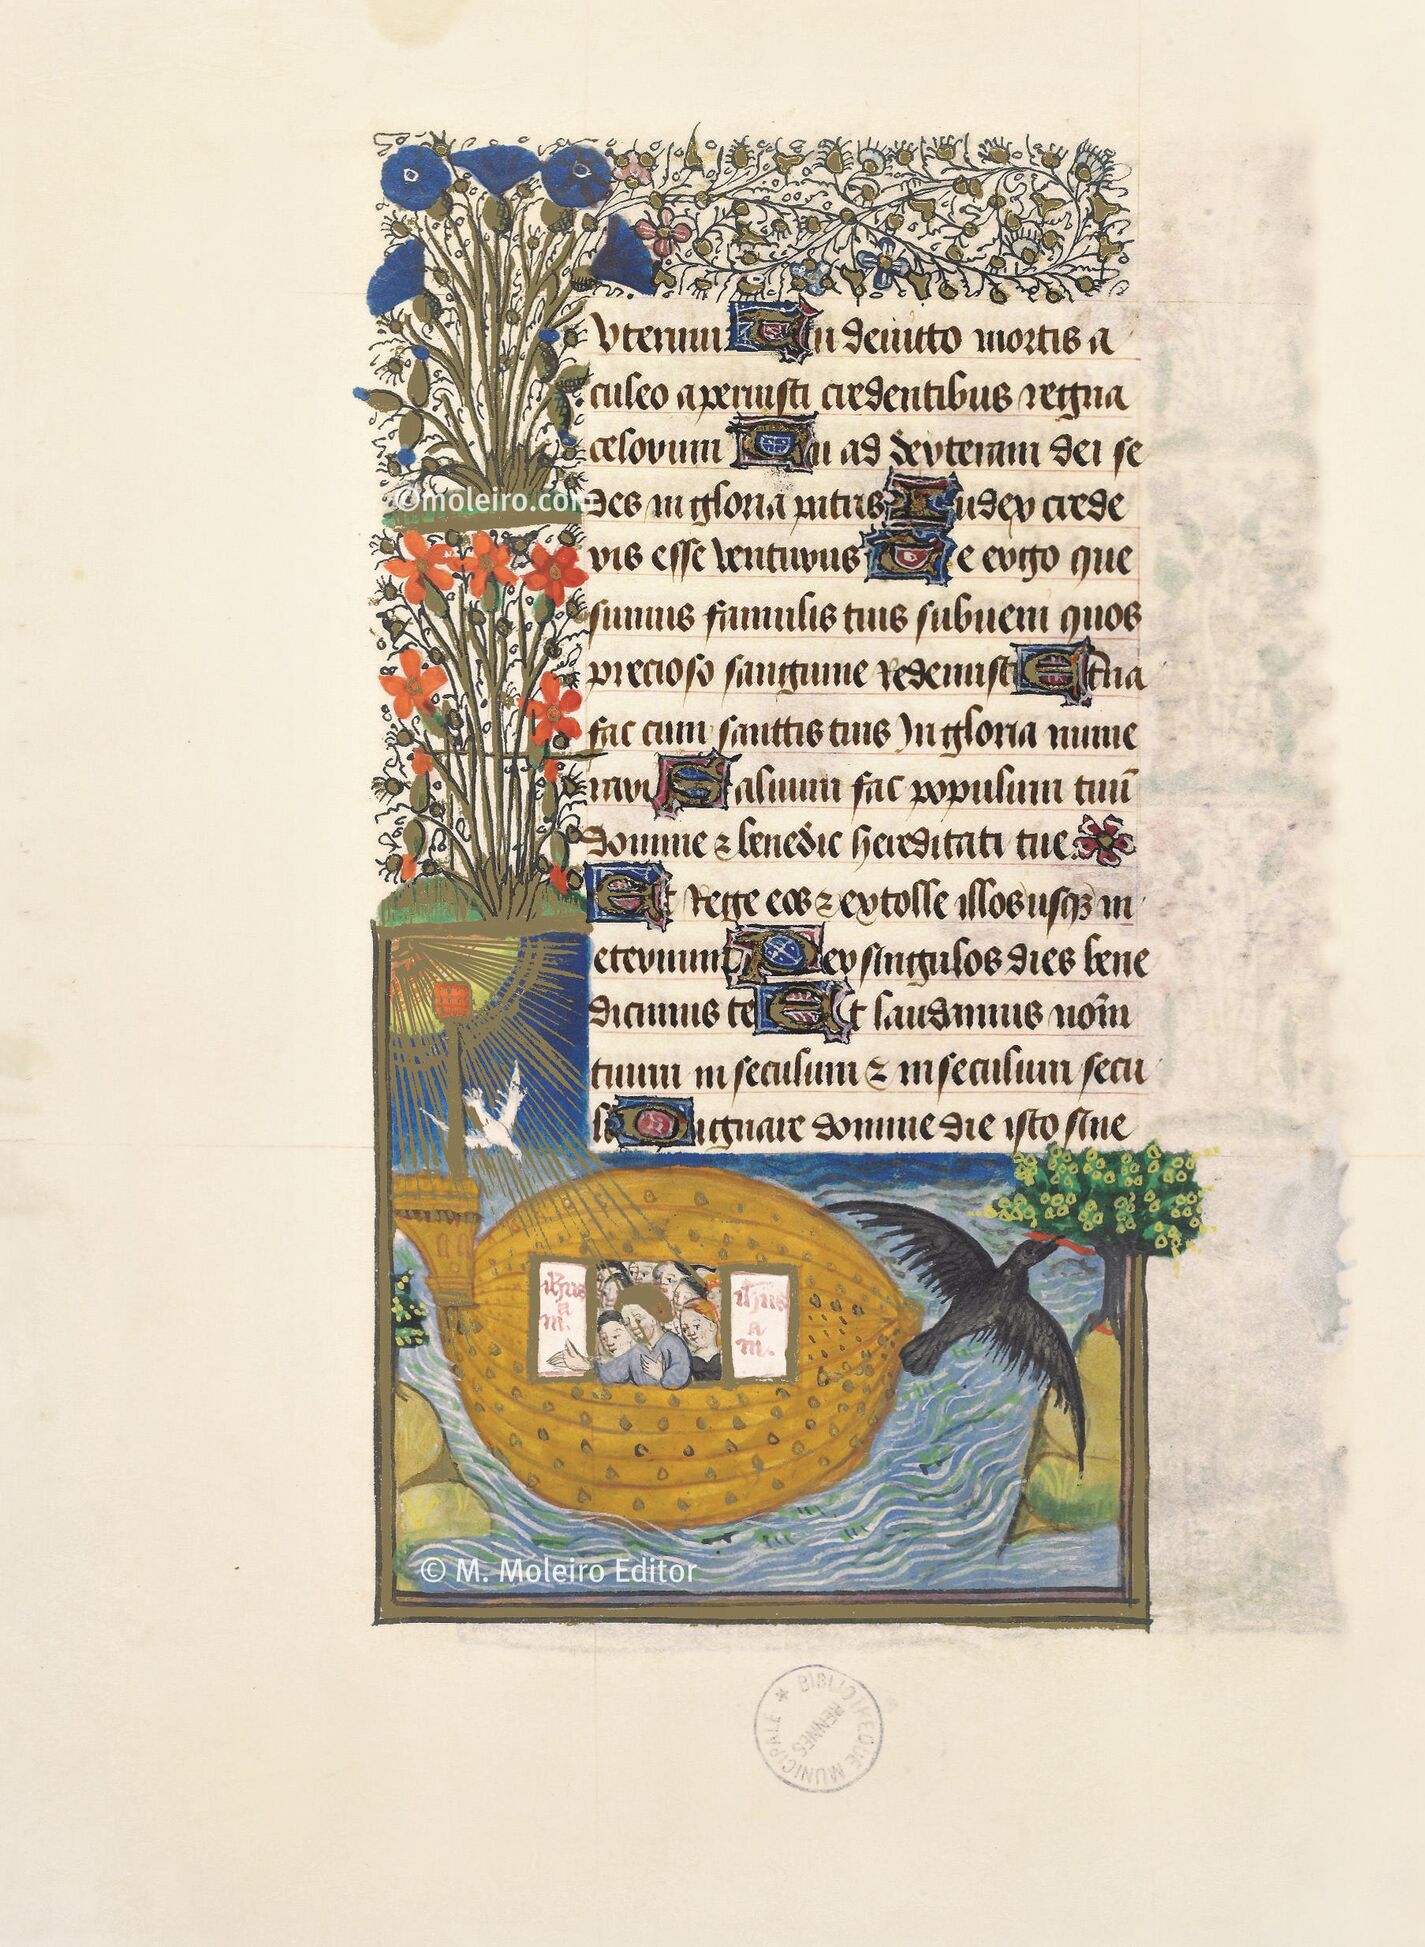 vterum Tu deuicto mortis a
culeo aperuisti credentibus regna
celorum Tu ad dexteram dei se
©moleiro.com
des in gloria patris Iudex crede
ris esse venturus Te ergo que
sumus famulis tuis subueni quos
precioso sanguine redemisti Eterna
fac cum sanctis tuis in gloria nume
rari Saluum fac populum tuū
domine ⁊ benedic hereditati tue
Et rege eos ⁊ extolle illos usqꝫ in
eternum Per singulos dies bene
dicimus te Et laudamus nom̄
tuum in seculum ⁊ in seculum secu
li Dignare domine die isto sine
ihus
a
m.
ihus
a
m.
© M. Moleiro Editor
BIBLIOTHEQUE MUNICIPALE
RENNES